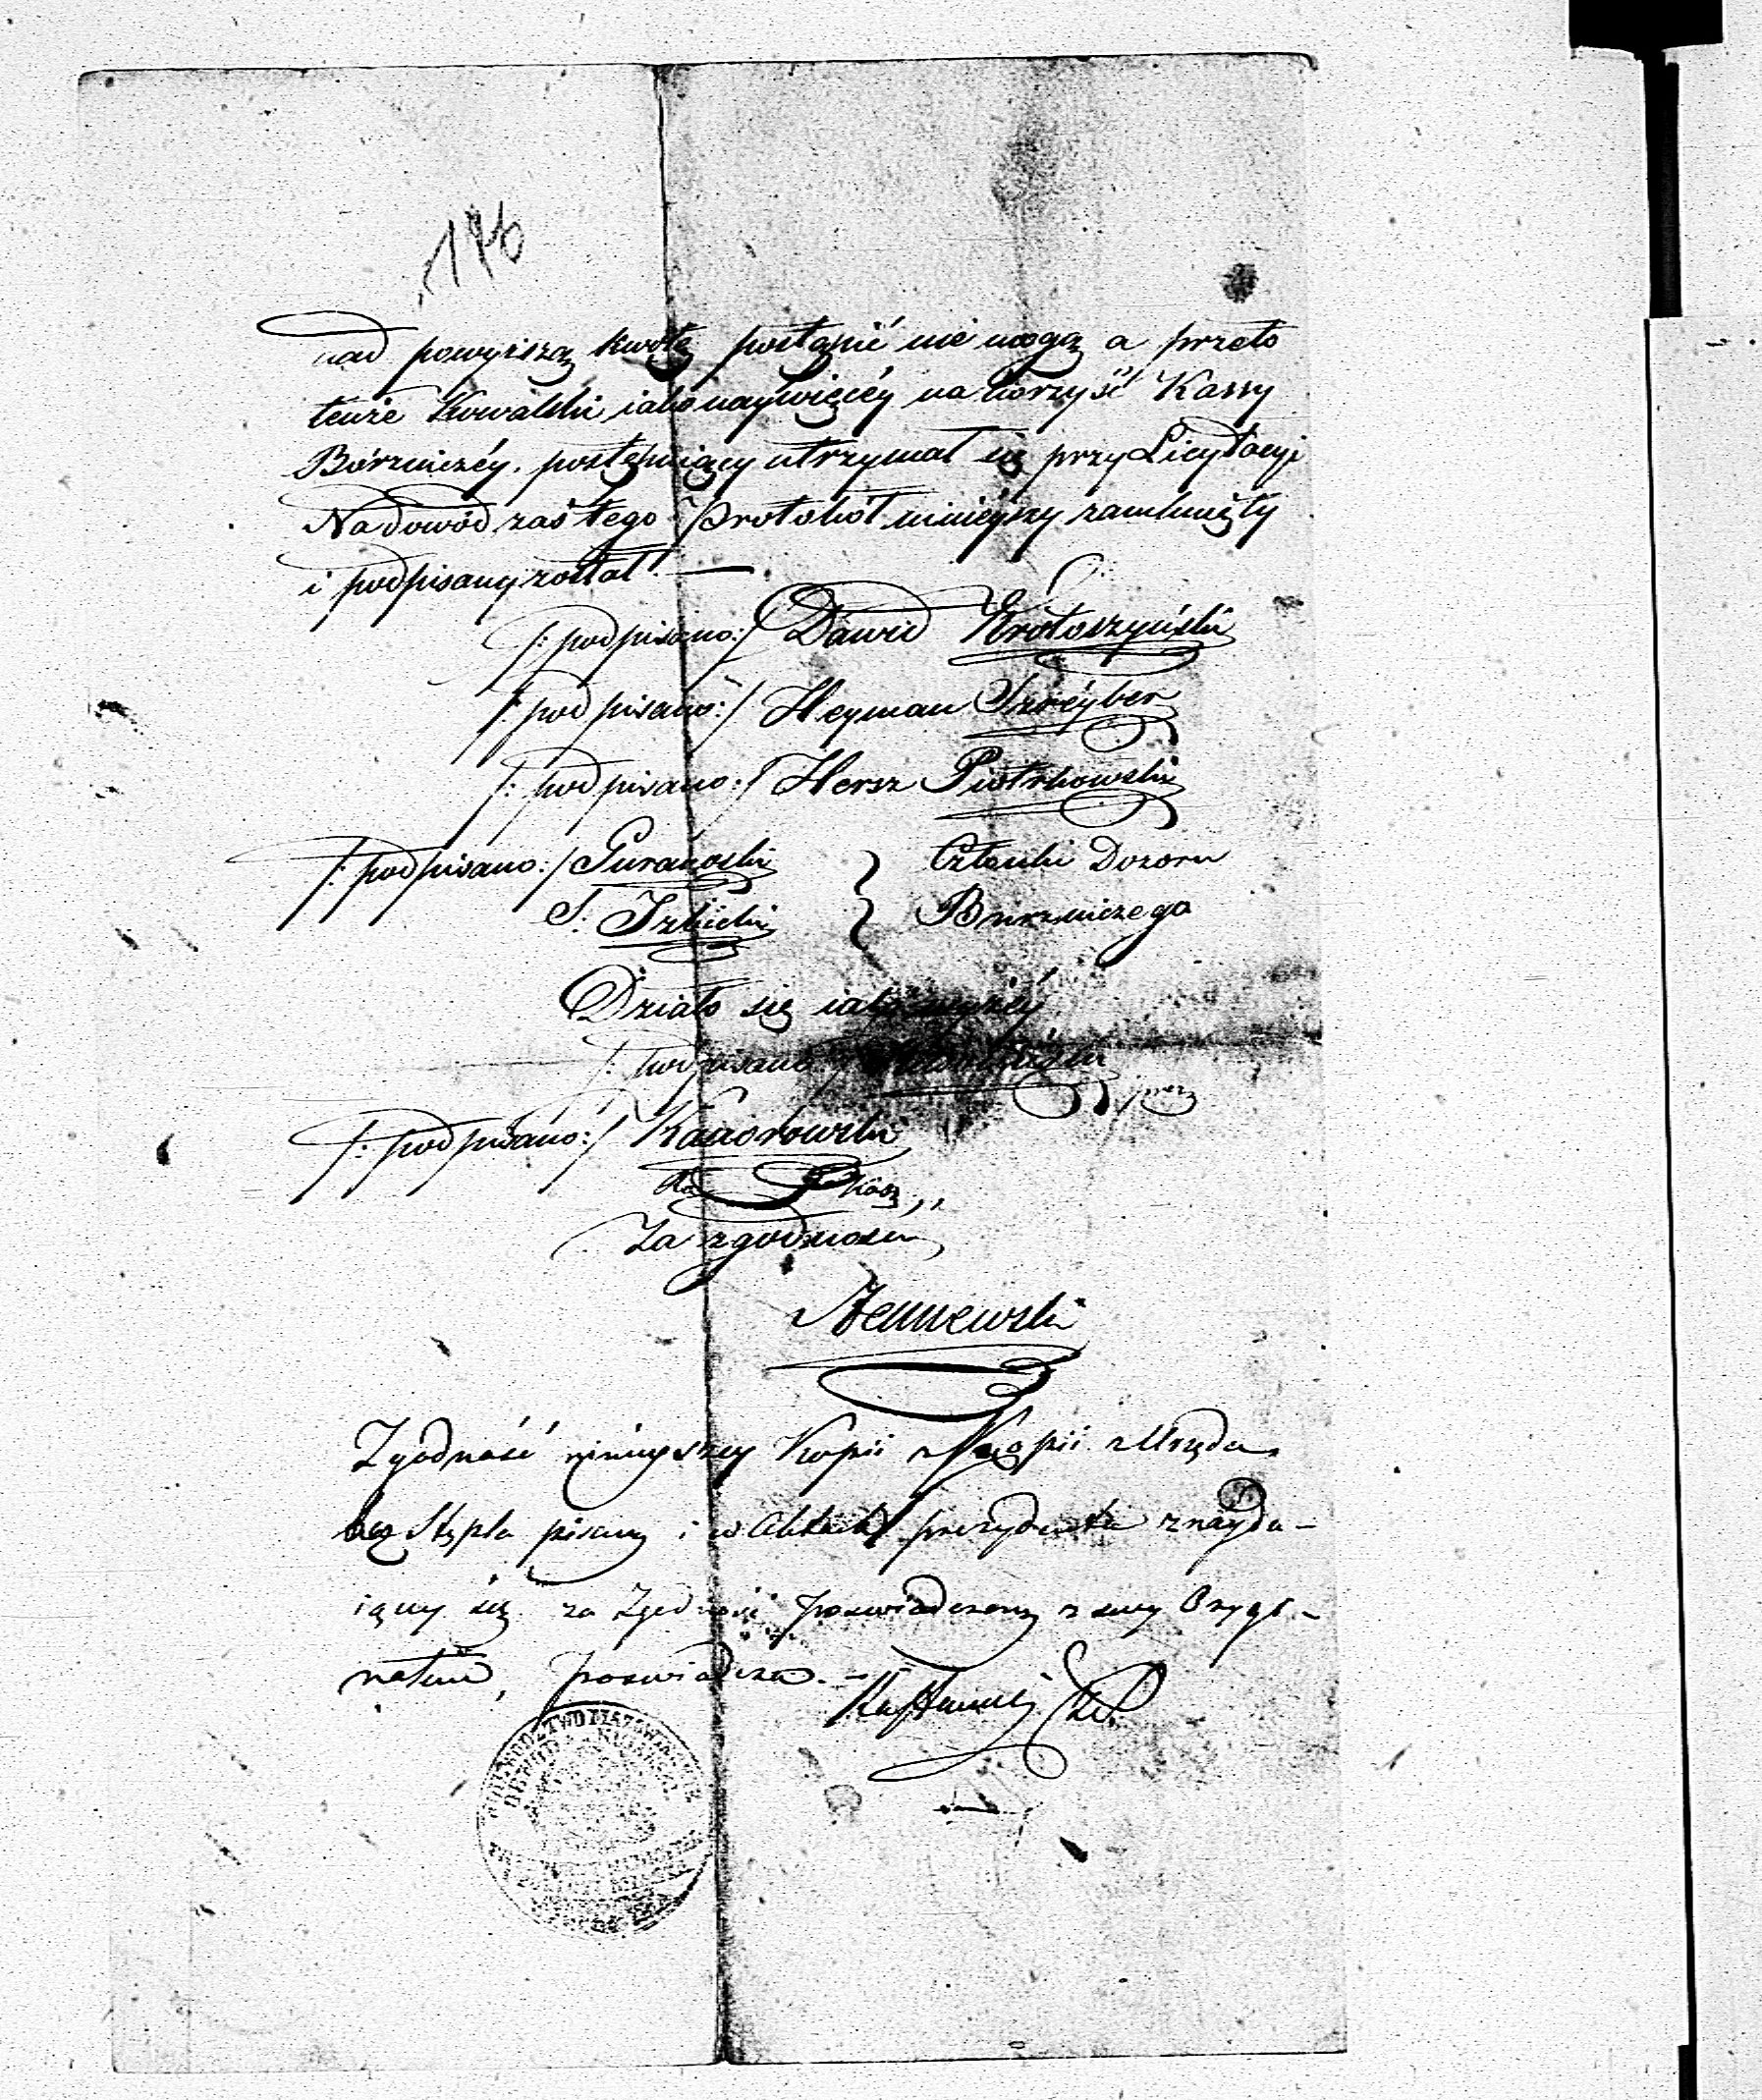 176
nad powyższą kwotę postąpić nie mogą a przeto
tenże Kowalski, iako naywięcéy na korzyść Kassy
Bóżniczéy postępuiący utrzymał się przy Licytacyi
Na dowód zaś tego Protokół ninieyszy zamknięty
i podpisany został. —
/: podpisano :/ Dawid Krotoszyński
/: podpisano :/ Heyman Szreyber
/: podpisano :/ Hersz Piotrkowski
/: podpisano :/ Członki Dozoru
S. Izbicki Burzniczego
Działo się iako wyżéy
/: podpisano :/
/: podpisano :/ Kaczorowski
Za zgodność
Zgodność ninieyszey Kopii z Kopii z Urzędu
bez Stępla pisaney i w Aktach prezydenta znaydu-
iącey się za Zgodność poswiadczoney z swym Orygi-
nałem, poswiadcza. —
WOIEWODZTWO MAZOWIECKIE
OBWOD KUIAWSKI